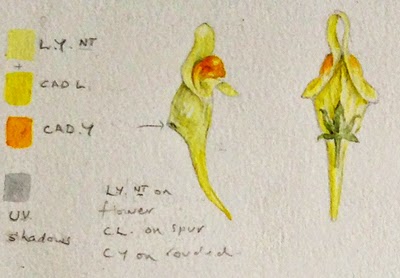 L.Y. NT
+
CAD L.
CAD.Y
U.V.
shadows
L.Y. NT on
flower
C.L. on spur
C Y on rounded